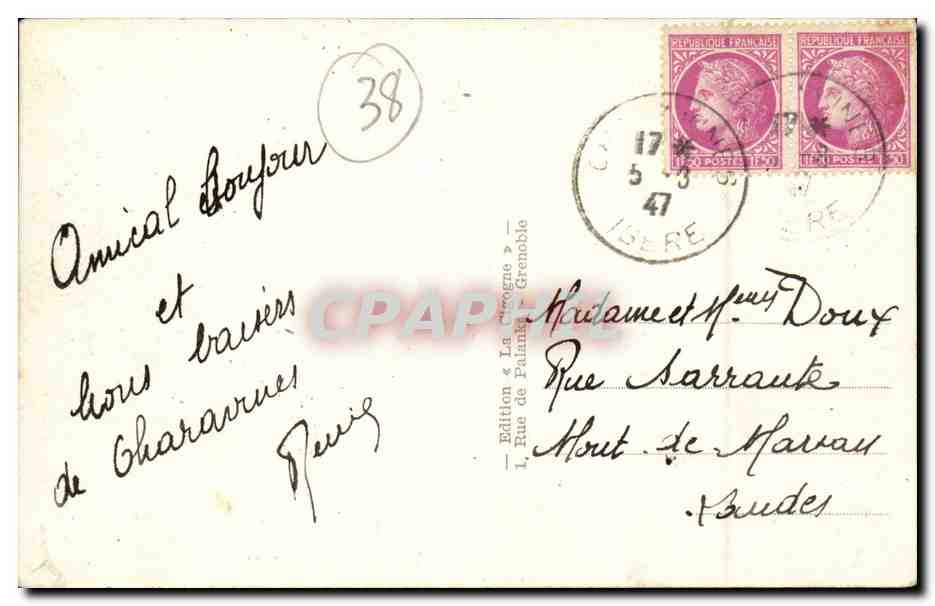 38
Amical Bonjour
et
bons baisers
de Charavines
— Edition « La Cigogne » —
1, Rue de Palanka - Grenoble
REPUBLIQUE FRANÇAISE
1F50 POSTES 1F50
REPUBLIQUE FRANÇAISE
1F50 POSTES 1F50
17 *
5 - 3
47
ISERE
17 *
ISERE
CPAPHIL
Madame et
Doux
Rue Sarraute
Mont de Marsan
Landes